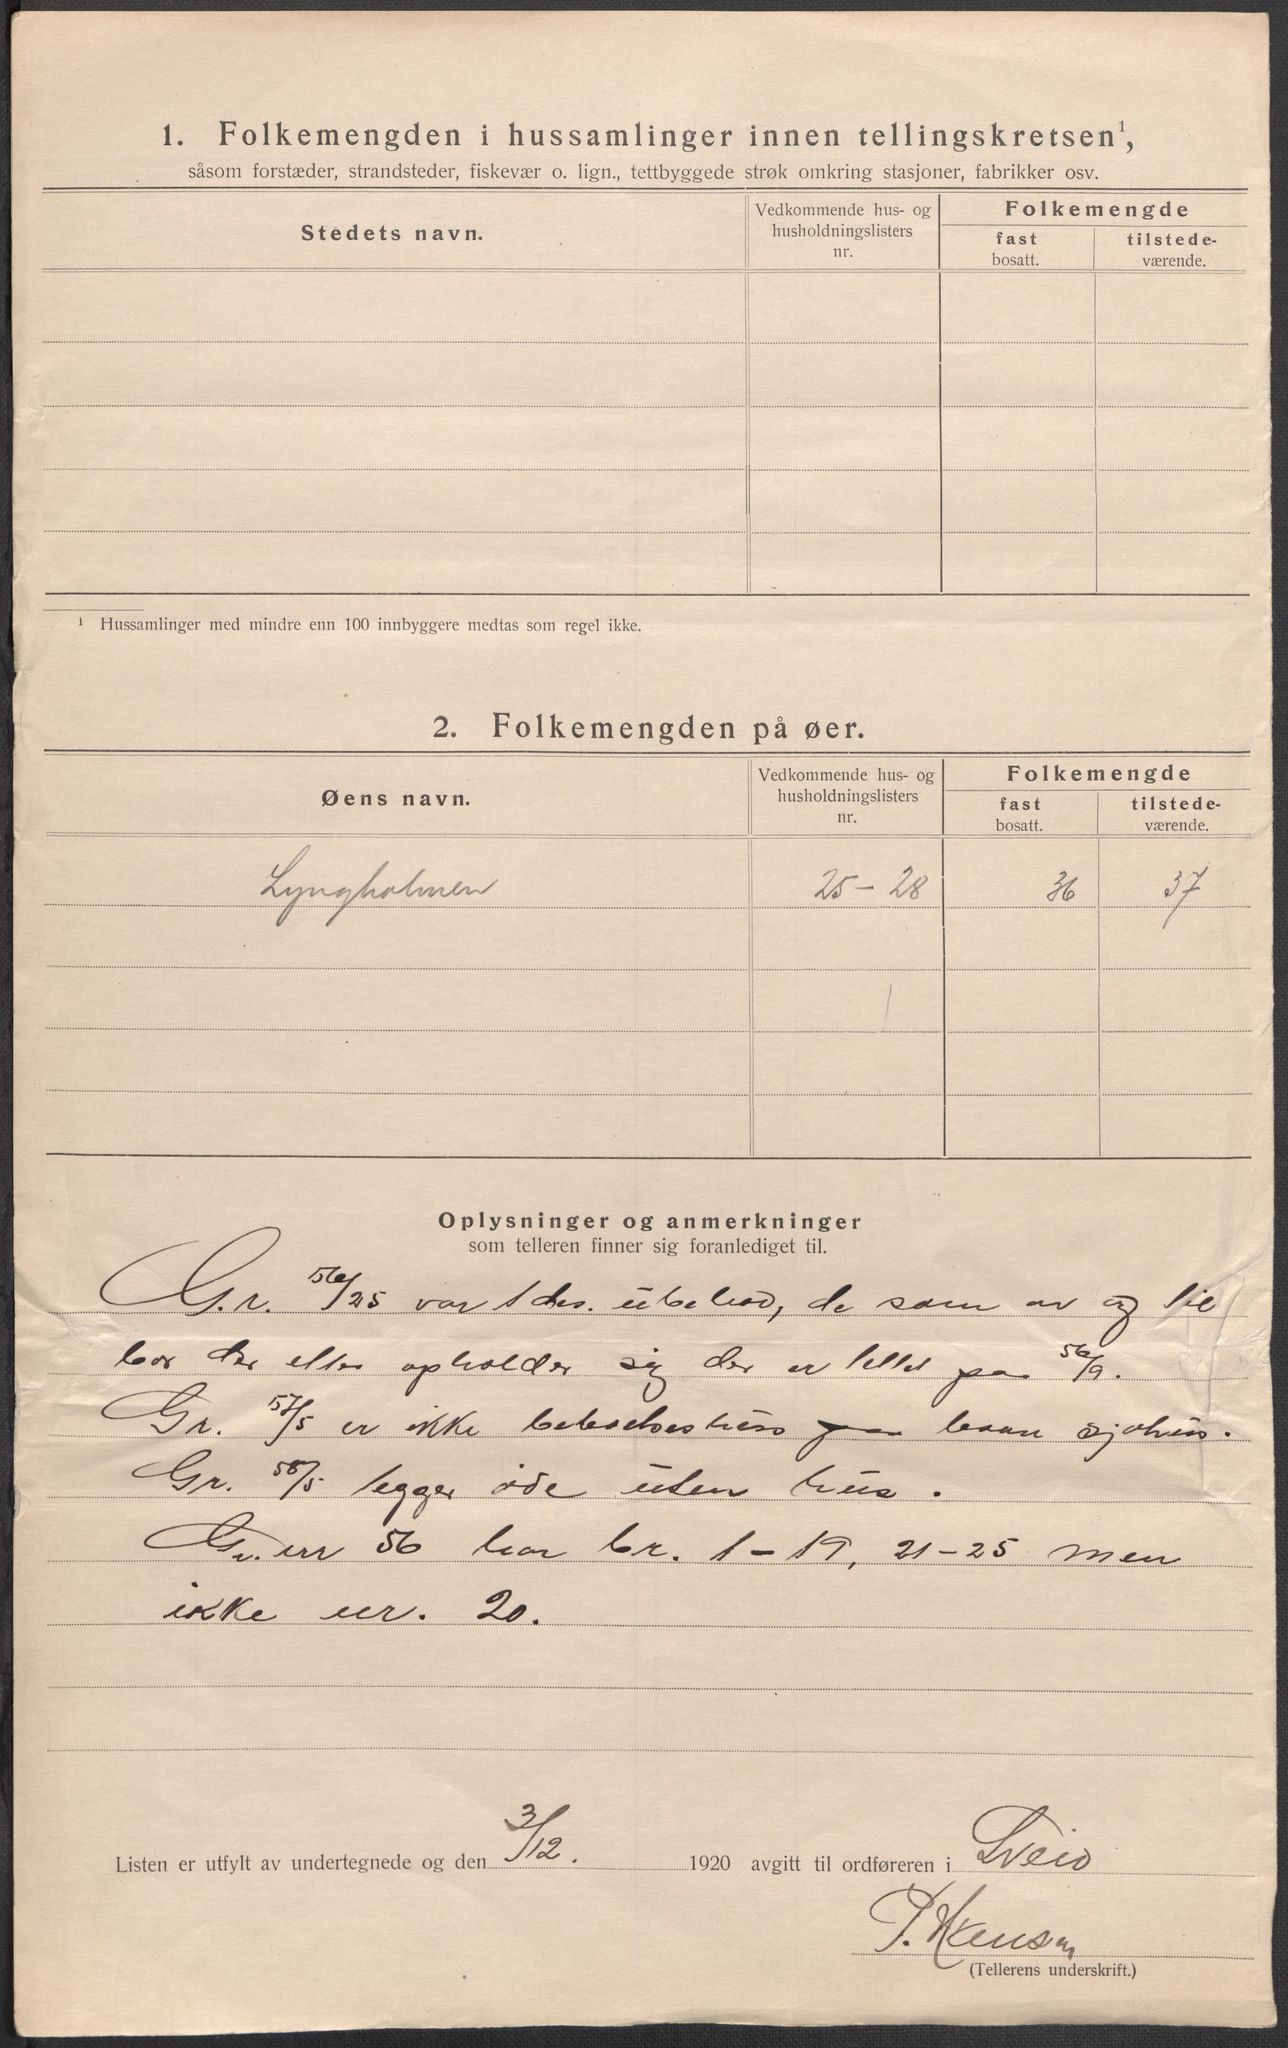 1. Folkemengden i hussamlinger innen tellingskretsen¹,
såsom forstæder, strandsteder, fiskevær o. lign., tettbyggede strøk omkring stasjoner, fabrikker osv.
Stedets navn.
Vedkommende hus- og
husholdningslisters
nr.
Folkemengde
fast
bosatt.
tilstede-
værende.
¹ Hussamlinger med mindre enn 100 innbyggere medtas som regel ikke.
2. Folkemengden på øer.
Øens navn.
Vedkommende hus- og
husholdningslisters
nr.
Folkemengde
fast
bosatt.
tilstede-
værende.
Lyngholmen 25-28 36 37
Oplysninger og anmerkninger
som telleren finner sig foranlediget til.
Gr. 56/25 var 1 des. ubebod, de som av og til
bor der eller opholder sig der er tellet paa 56/9.
Gr. 57/5 er ikke beboelseshus bare sjøhus.
Gr. 58/5 legger øde uten hus.
56 har br. 1-19, 21-25 men
ikke nr. 20.
Listen er utfylt av undertegnede og den 3/12. 1920 avgitt til ordføreren i Sveio
(Tellerens underskrift.)